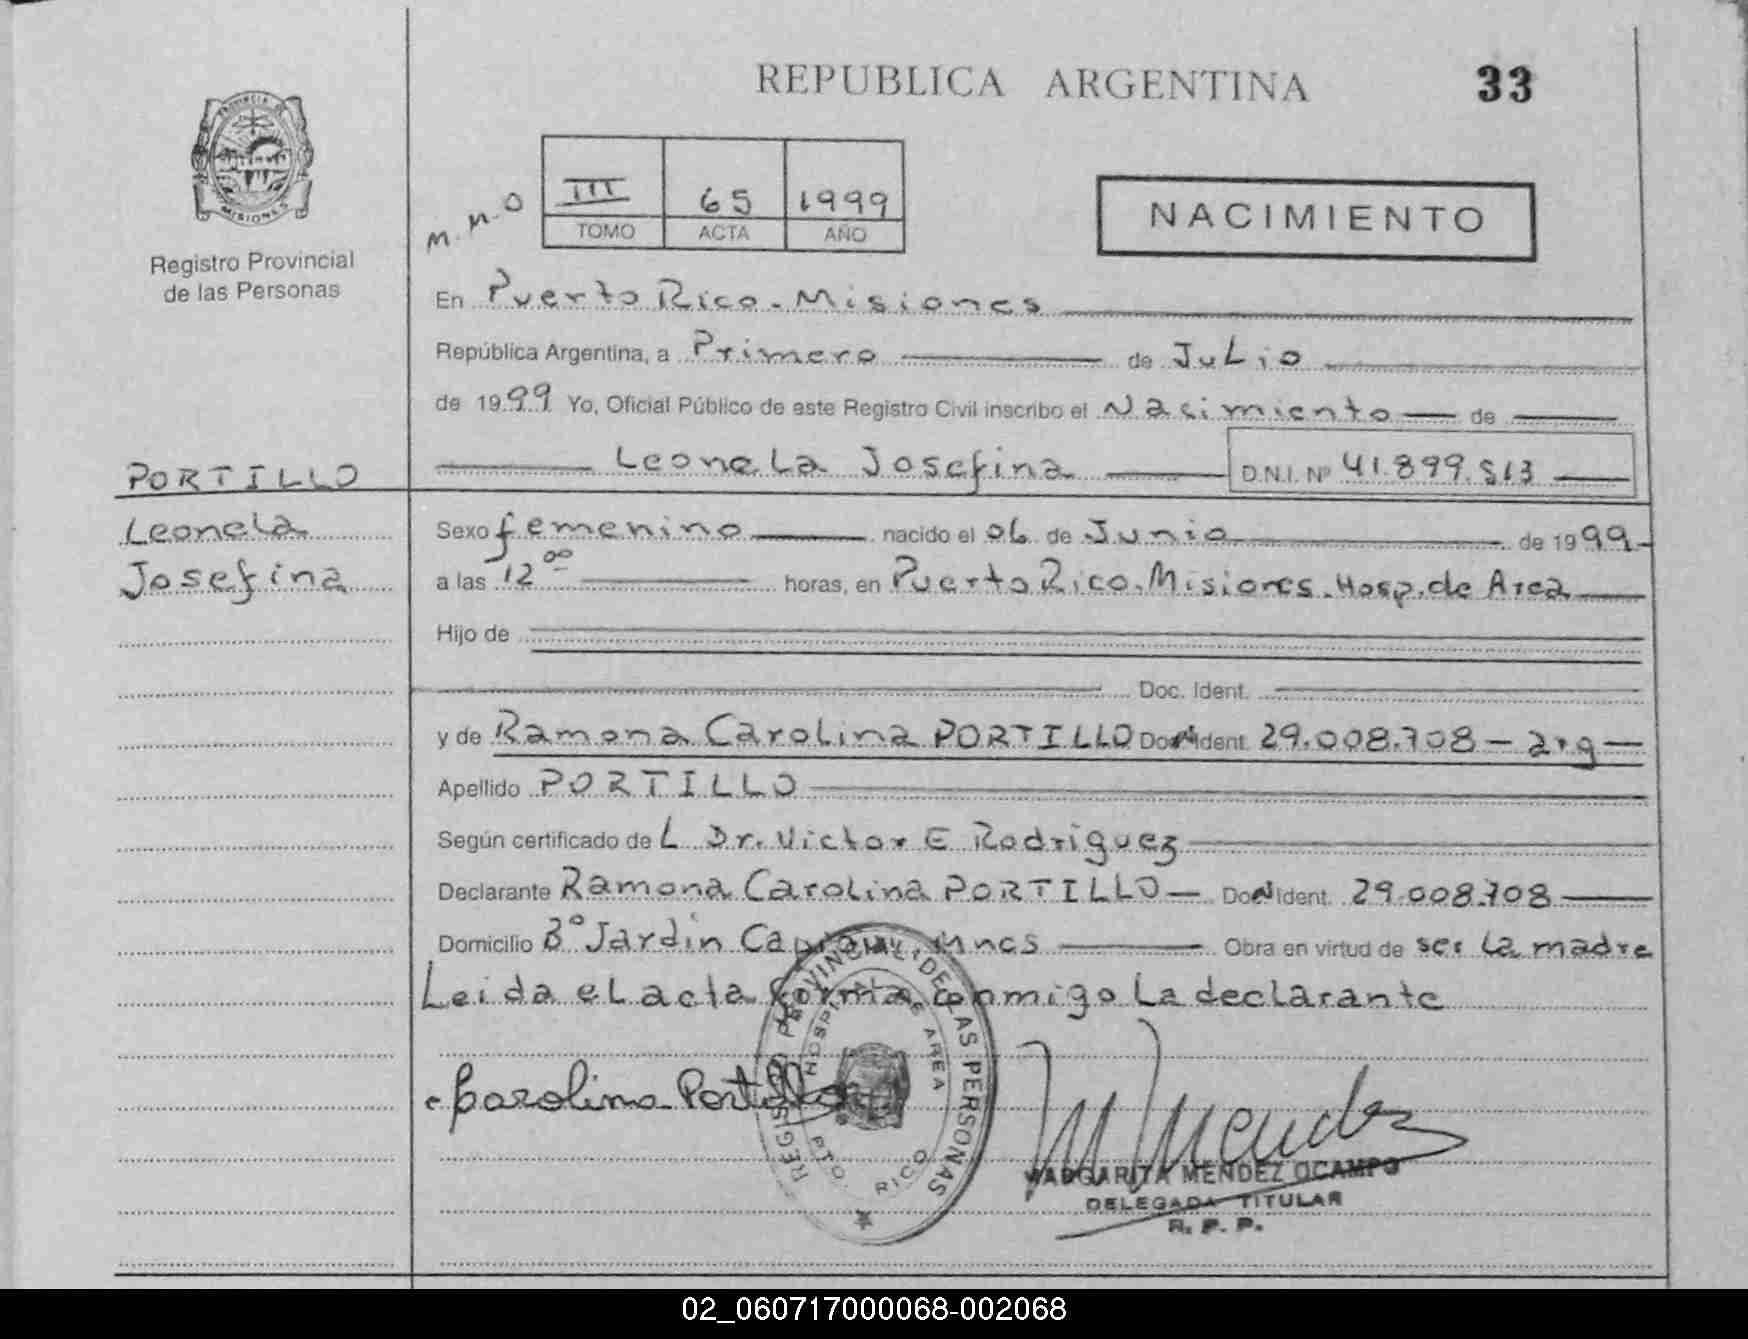 REPUBLICA ARGENTINA 33
PROVINCIA DE
MISIONES
Registro Provincial
de las Personas
M.M.O
III 65 1999
TOMO ACTA AÑO
NACIMIENTO
En Puerto Rico - Misiones
República Argentina, a Primero de Julio
de 1999 Yo, Oficial Público de este Registro Civil inscribo el Nacimiento de
Leonela Josefina D.N.I. Nº 41.899.513
PORTILLO
Leonela
Josefina
Sexo femenino nacido el 06 de Junio de 1999
a las 12 00 horas, en Puerto Rico. Misiones. Hosp. de Area
Hijo de
Doc. Ident.
y de Ramona Carolina PORTILLO Doc. Ident. 29.008.708 - arg
Apellido PORTILLO
Según certificado de L Dr. Victor E Rodriguez
Declarante Ramona Carolina PORTILLO Doc. Ident. 29.008.708
Domicilio Bº Jardin Mnes Obra en virtud de ser la madre
Leida el acta firma conmigo La declarante
Carolina Portillo
REGISTRO PROVINCIAL DE LAS PERSONAS
HOSPITAL DE AREA
PTO. RICO
M Mendez
MARGARITA MENDEZ OCAMPO
DELEGADA TITULAR
R. P. P.
02_060717000068-002068